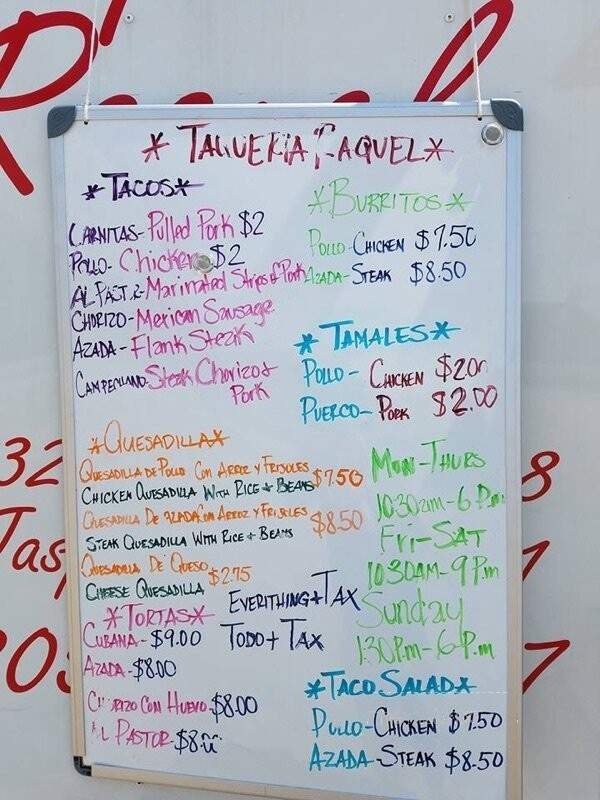 * TAQUERIA RAQUEL *
* TACOS *
CARNITAS- Pulled Pork $2
POLLO- Chicken $2
AL PASTOR- Marinated Strips of Pork
CHORIZO- Mexican Sausage
AZADA - Flank Steak
CAMPECHANO- Steak Chorizo &
Pork
* BURRITOS *
POLLO- CHICKEN $7.50
AZADA- STEAK $8.50
* TAMALES *
POLLO - CHICKEN $2.00
PUERCO- PORK $2.00
* QUESADILLA *
QUESADILLA DE POLLO CON ARROZ Y FRIJOLES
CHICKEN QUESADILLA WITH RICE & BEANS $7.50
QUESADILLA DE AZADA CON ARROZ Y FRIJOLES
STEAK QUESADILLA WITH RICE & BEANS $8.50
QUESADILLA DE QUESO
CHEESE QUESADILLA $2.75
MON-THURS
10:30am-6 P.m
Fri-SAT
10:30AM-9 P.m
Sunday
1:30 P.m-6 P.m
EVERITHING + TAX
TODO + TAX
* TORTAS *
CUBANA - $9.00
AZADA - $8.00
CHORIZO CON HUEVO- $8.00
AL PASTOR- $8.00
* TACO SALAD *
POLLO- CHICKEN $7.50
AZADA- STEAK $8.50